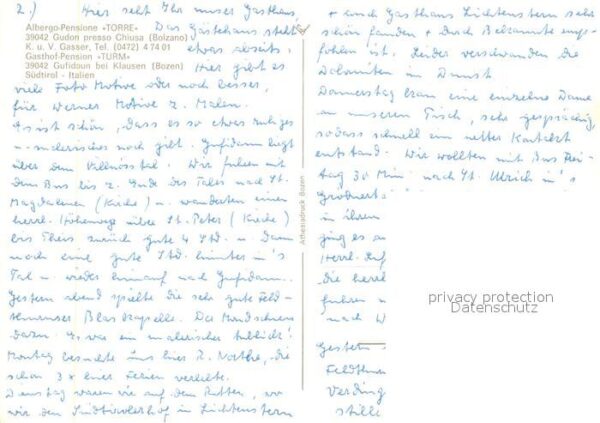 2.) Hier seht Ihr unser Gasthaus,
Albergo-Pensione «TORRE»
39042 Gudon presso Chiusa (Bolzano)
K. u. V. Gasser, Tel. (0472) 4 74 01
Gasthof-Pension «TURM»
39042 Gufidaun bei Klausen (Bozen)
Südtirol - Italien
Das Gästehaus steht
etwas abseits.
Hier gibt es
viele Foto Motive oder noch besser,
für Werner Motive z. Malen.
Es ist schön, dass es so etwas ruhiges
u. malerisches noch gibt. Gufidaun liegt
über dem Villnösstal. Wir fuhren mit
dem Bus bis z. Ende des Tales nach St.
Magdalena (Kirche) u. wanderten einen
herrl. Höhenweg über St. Peter (Kirche)
bis Theis zurück gute 4 Std. u. Dann
noch eine gute Std. hinunter in's
Tal u. wieder hinauf nach Gufidaun.
Gestern abend spielte die sehr gute Feld-
thurnser Blaskapelle. Der Mondschein
dazu. Es war ein malerischer Anblick!
Montag besuchte uns hier R. Noethe, die
schon 3 x hier Ferien verlebte.
Dienstag waren wir auf dem Ritten, wo
wir den Südtirolerhof in Lichtenstern
Athesiadruck Bozen
+ auch Gasthaus Lichtenstern sehr
schön fanden + durch Bekannte emp-
fohlen ist. Leider verschwanden die
Dolomiten in Dunst
Donnerstag kam eine einzelne Dame
an unseren Tisch, sehr gesprächig,
sodass schnell ein netter Kontakt
entstand. Wir wollten mit Bus Frei-
tag 30 Min nach St. Ulrich in's
in ihrem
ging es
Herrl.
die herrl
fuhren
nach W
privacy protection
Datenschutz
Gestern
Feldthurn
Verding
stille